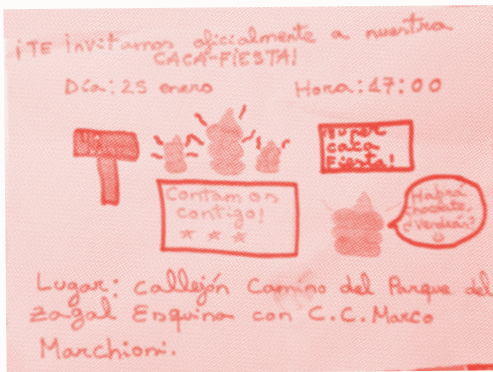 ¡TE invitamos oficialmente a nuestra
CACA-FIESTA!
Día: 25 enero
Hora: 17:00
Super
caca
Fiesta!
Contamos
contigo!
Habrá
chocolate.
¿Vendrás?
Lugar: callejón Camino del Parque del
Zagal Esquina con C.C. Marco
Marchioni.